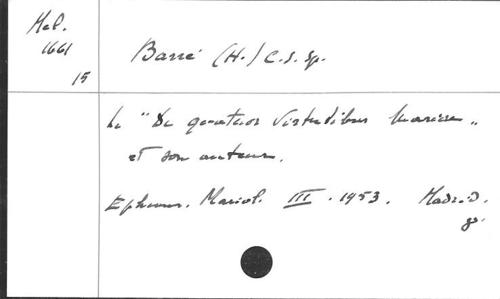 Mel.
1661
15
Barré (H.) C.S.Sp.
Le "De quatuor Virtutibus Mariae"
et son auteur.
Ephem. Mariol. III. 1953. Madrid.